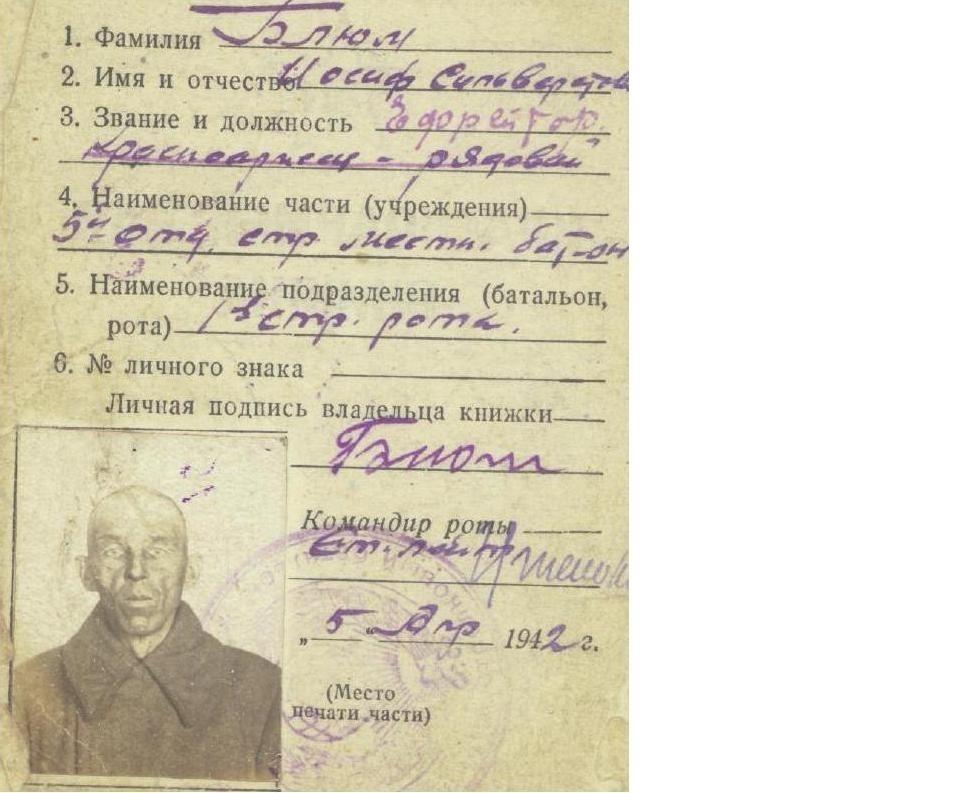 1. Фамилия Блюм
2. Имя и отчество Иосиф
3. Звание и должность Ефрейтор.
Красноармеец - рядовой
4. Наименование части (учреждения)
5й отд. стр. местн. бат-он
5. Наименование подразделения (батальон,
рота) 1я стр. рота.
6. № личного знака
Личная подпись владельца книжки
Блюм
Командир роты
Ст. лейт
„5“ Апр 1942 г.
(Место
печати части)